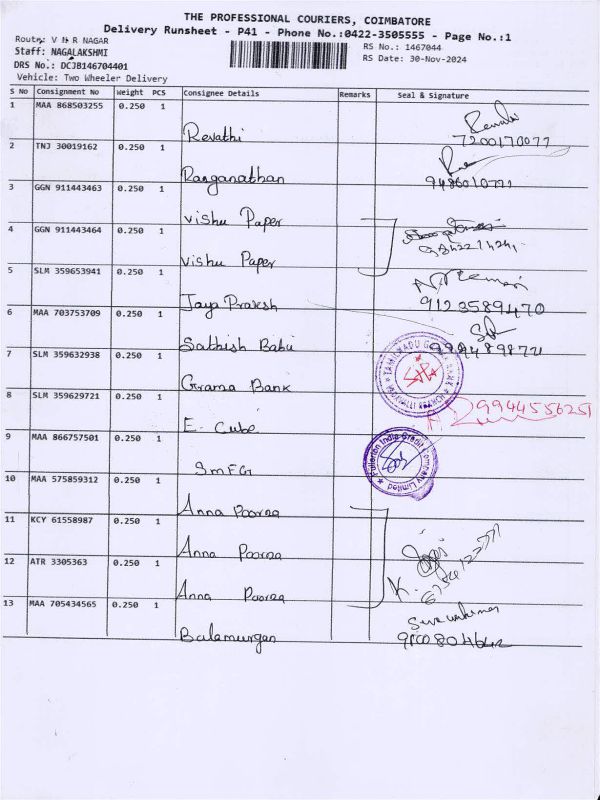 THE PROFESSIONAL COURIERS, COIMBATORE
Delivery Runsheet - P41 - Phone No.:0422-3505555 - Page No.:1
Route: V N R NAGAR
RS No.: 1467044
Staff: NAGALAKSHMI
RS Date: 30-Nov-2024
DRS No.: DCJB146704401
Vehicle: Two Wheeler Delivery
S No Consignment No Weight PCS Consignee Details Remarks Seal & Signature
1 MAA 868503255 0.250 1
Revathi 7200170077
2 TNJ 30019162 0.250 1
Ranganathan
3 GGN 911443463 0.250 1
Vishu Paper
4 GGN 911443464 0.250 1
Vishu Paper
5 SLM 359653941 0.250 1
Jaya Prakesh 9123589470
6 MAA 703753709 0.250 1
Sathish Babu
7 SLM 359632938 0.250 1
Grama Bank
TAMILNADU GRAMA BANK
8 SLM 359629721 0.250 1
9944556251
E. Cube
9 MAA 866757501 0.250 1
SMFG
Fullerton India Credit Company Limited
10 MAA 575859312 0.250 1
Anna Poorna
11 KCY 61558987 0.250 1
Anna Poorna
12 ATR 3305363 0.250 1
Anna Poorna
13 MAA 705434565 0.250 1
Balamurgan